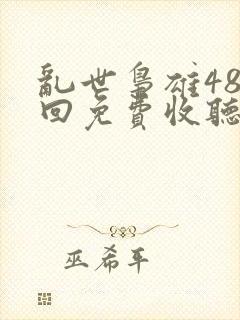 亂世梟雄48
回免費收聽
巫希平